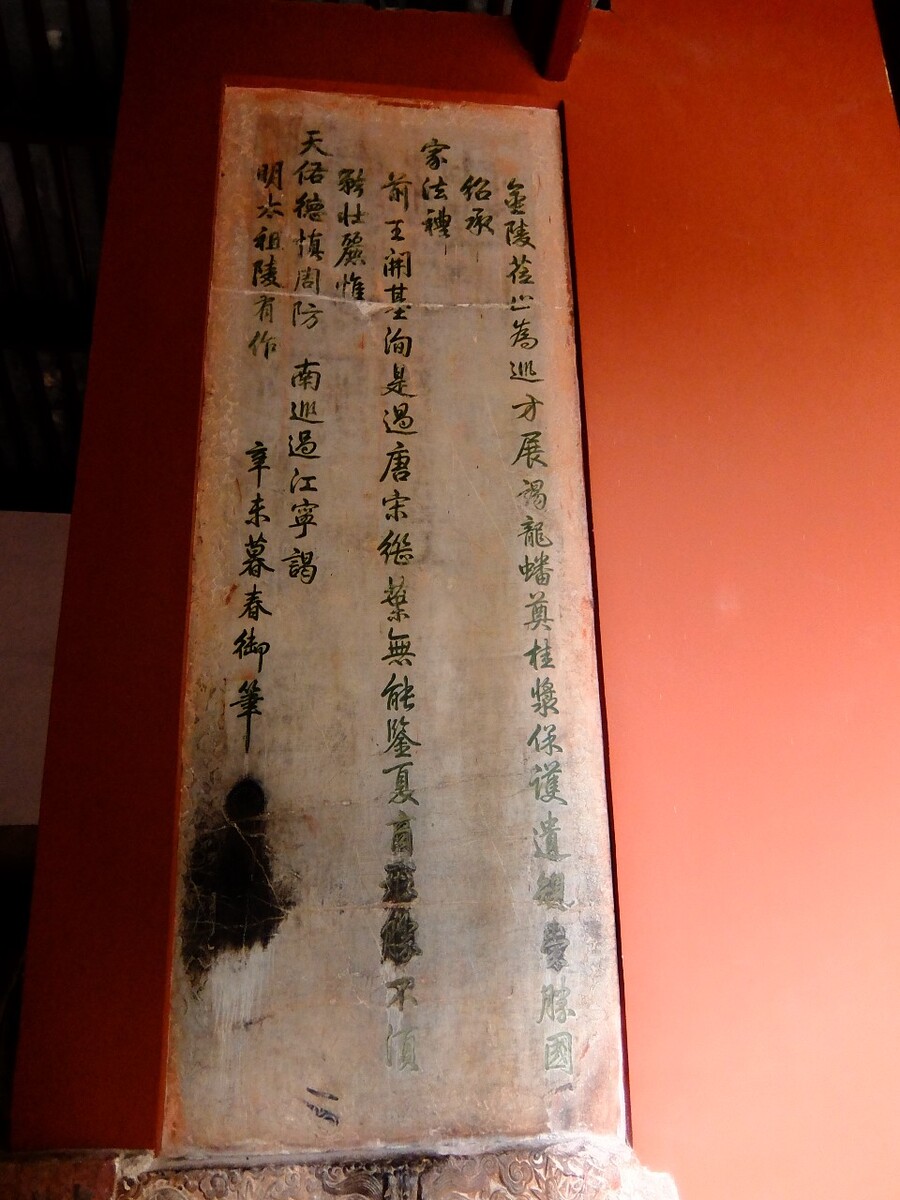 金陵莅止為巡方展謁龍蟠奠桂漿保護遺規崇勝國
紹承
家法禮
前王開基洵是過唐宋繼葉無能鑒夏商形勝不須
矜壯麗惟
天佑德慎周防 南巡過江寧謁
明太祖陵有作 辛未暮春御筆